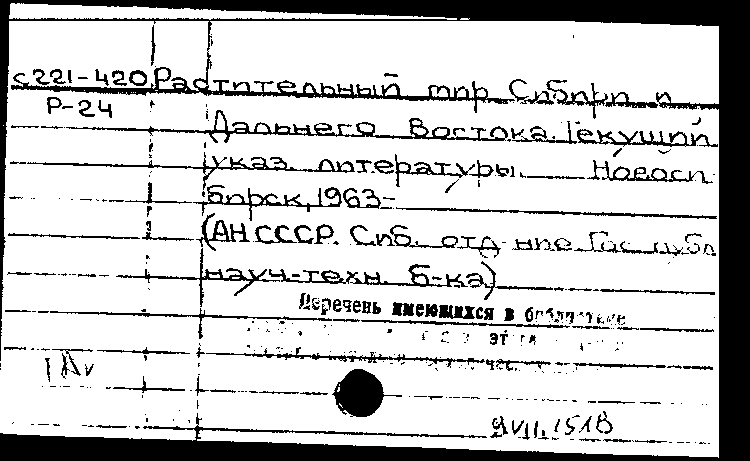 с221-420 Растительный мир Сибири и
Р-24
Дальнего Востока. Текущий
указ. литературы. Новоси
бирск, 1963-
(АН СССР. Сиб. отд-ние. Гос. публ
науч.-техн. б-ка)
Перечень имеющихся в библиотеке
этом
9 VII. 1518